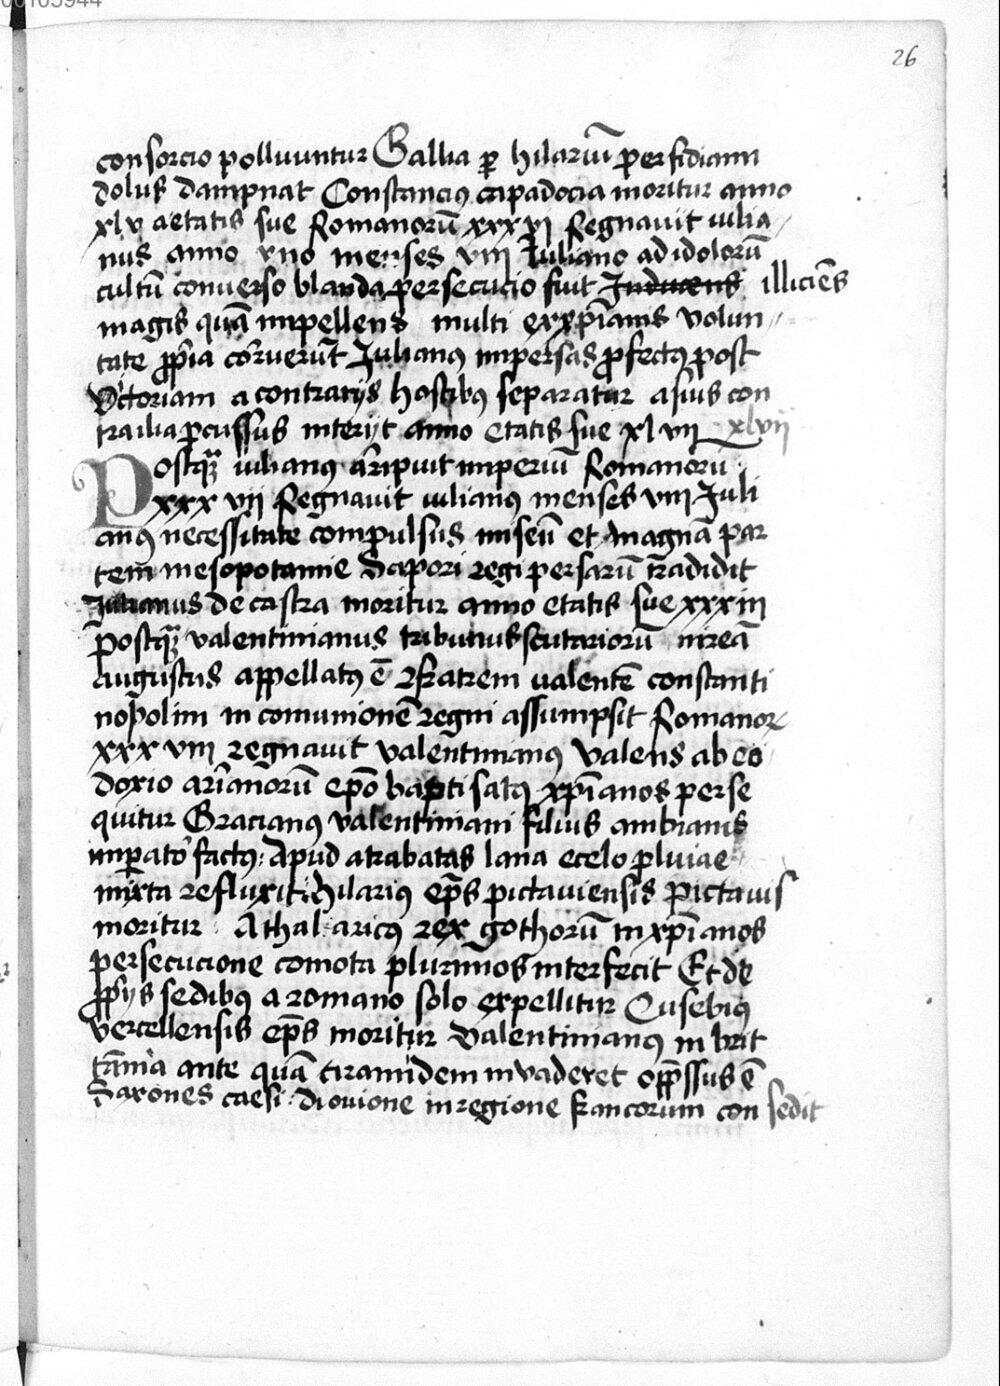 00103944
26
consorcio polluuntur Gallia ꝑ hilariū perfidiam
dolus dampnat Constancius capadocia moritur anno
xlv aetatis sue Romanorū xxxvi Regnauit iulia//
nus anno vno menses viii Iuliano ad idolorū
cultū conuerso blanda persecucio fuit Inducens illiciēs
magis quā impellens multi exxp̄ianis volun//
tate ꝓpria corruerūt Iulianus in persas ꝓfectus post
Victoriam a contrarijs hostibus separatur a suis con
tra ilia ꝑcussus interijt anno etatis sue xlvii xlvii
Postquā iulianus arripuit imperiū Romanorū
xxxvij Regnauit iulianus menses viii Iuli
anus necessitate compulsus niseū et magnā par
tem mesopotamie Sapori regi persarū tradidit
Iulianus de castra moritur anno etatis sue xxxiii
postquā valentinianus tribunus scutariorū nireā
augustus appellatus ē ⁊ fratrem ualentē constanti
nopolim in comunionē regni assumpsit Romanor
xxxviii regnauit valentinianus Valens ab eo
doxio arrianorū ep̄o baptisatus xp̄ianos perse
quitur Gracianus valentiniani filius ambianis
imꝑator factus: Apud atrabatas lana e celo pluuiae
mixta refluxit: hilarius ep̄s pictauiensis pictauis
moritur Athalaricus rex gothorū in xp̄ianos
persecucione comota plurimos interfecit Et de
ꝓprijs sedibus a romano solo expellitur Eusebius
vercellensis ep̄s moritur Valentinianus in brit
tānia ante quā tiramidem inuaderet opp̄ssus ē
Saxones caesi: diouione in regione francorum con sedit